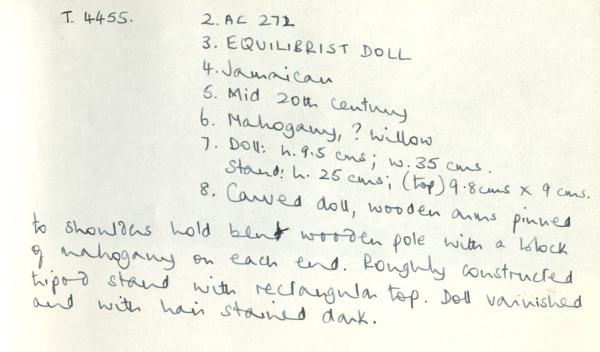 T. 4455. 2. AC 272
3. EQUILIBRIST DOLL
4. Jamaican
5. Mid 20th century
6. Mahogany, ? willow
7. Doll: h. 9.5 cms; w. 35 cms.
Stand: h. 25 cms; (top) 9.8cms x 9 cms.
8. Carved doll, wooden arms pinned
to shoulders hold bent wooden pole with a block
of mahogany on each end. Roughly constructed
tripod stand with rectangular top. Doll varnished
and with hair stained dark.